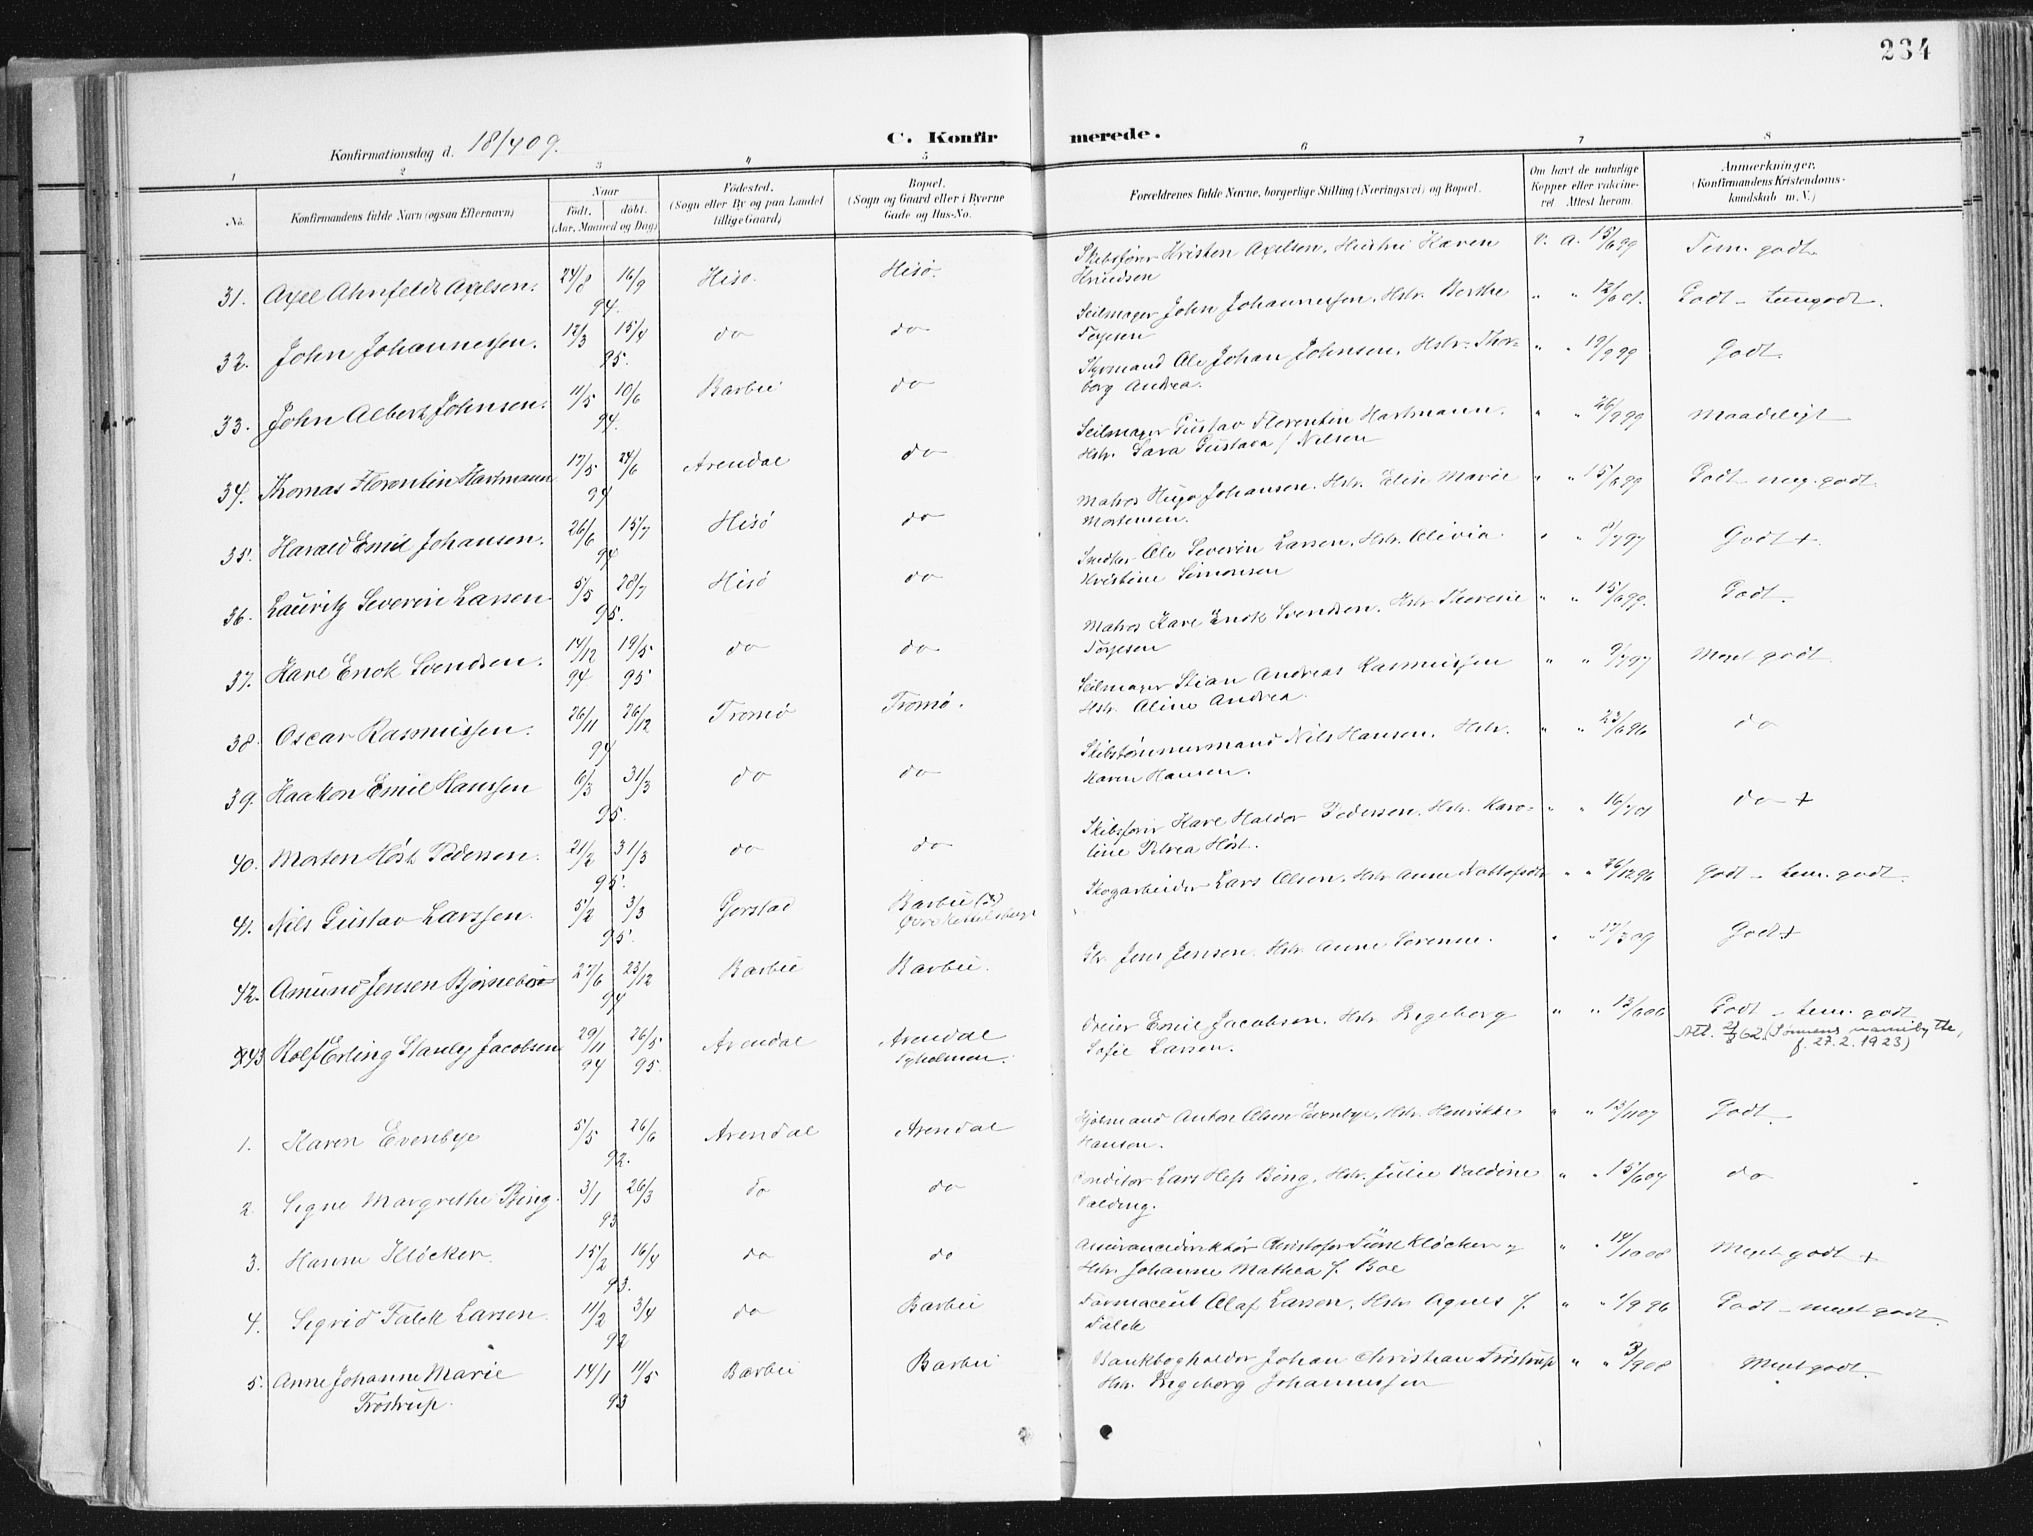 234
Konfirmationsdag d. 18/4 09.
C. Konfirmerede.
1 2 3 4 5 6 7 8
No. Konfirmandens fulde Navn (ogsaa Efternavn) Naar født. døbt. (Aar, Maaned og Dag) Fødested. (Sogn eller By og paa Landet tillige Gaard) Bopæl. (Sogn og Gaard eller i Byerne Gade og Hus-No. Forældrenes fulde Navne, borgerlige Stilling (Næringsvei) og Bopæl. Om havt de naturlige Kopper eller vaccineret Attest herom. Anmærkninger. (Konfirmandens Kristendomskundskab m. V.)
31. Axel Ahnfeldt Axelsen. 24/8 16/9 94. Hisø. Hisø. Skibsfører Kristen Axelsen, Hustru Karen Knudsen v. a. 15/6 99 Tem. godt.
32. John Johannessen. 12/3 15/4 95. do do Seilmager John Johannessen, Hstr. Berthe Terjesen " " 12/6 01. Godt - temgodt.
33. John Albert Johnsen. 11/5 10/6 94. Barbu do Styrmand Ole Johan Johnsen, Hstr. Thorborg Andrea. " " 19/9 99 Godt.
34. Thomas Florentin Hartmann 17/5 24/6 94 Arendal do Seilmager Gustav Florentin Hartmann, Hstr. Sara Gustava f. Nilsen " " 26/9 99 Maadeligt
35. Harald Emil Johansen. 26/6 15/7 94 Hisø do Matros Hugo Johansen, Hstr. Elise Marie Mortensen. " " 15/6 99 Godt - meg. godt.
36. Lauritz Severin Larsen 5/5 28/7 95. Hisø do Snedker Ole Severin Larsen, Hstr. Olivia Kristine Simonsen " " 9/7 97 Godt +.
37. Kare Enok Svendsen. 14/12 94 19/5 95 do do Matros Kare Enok Svendsen, Hstr. Therese Terjesen " " 15/6 99. Godt.
38. Oscar Rasmussen. 26/11 26/12 94 Tromø Tromø. Seilmager Stian Andreas Rasmussen Hstr. Aline Andrea. " " 9/7 97 Meget godt
39. Haakon Emil Hanssen 6/3 31/3 95. do do Skibstømmermand Nils Hansen, Hstr. Karen Hansen. " " 23/6 96 do
40. Morten Høst Pedersen. 21/2 31/3 95. do do Skibsfører Kare Haldor Pedersen, Hstr. Karoline Petrea Høst. " " 16/7 01 do +
41. Nils Gustav Larssen. 5/2 3/3 95. Gjerstad Barbu Skogarbeider Lars Olsen, Hstr. Anne " " 26/12 96 Godt - tem. godt.
42. Amund Jensen Bjørnebo 27/6 23/12 94 Barbu Barbu. Gbr. Jens Jensen, Hstr. Anne Lovenne. " " 17/3 09 Godt +
43 Rolf Erling Stanley Jacobsen 29/11 94 26/5 95. Arendal Arendal Tyholmen. Dreier Emil Jacobsen, Hstr. Ingeborg Sofie Larsen. " " 13/6 06 Godt - tem. godt
Att. 2/3 62. (Sønnens navnebytte, f. 27.2.1923)
1. Karen Evenbye 5/5 26/6 92. Arendal Arendal Hjulmand Anton Olsen Evenbye, Hstr. Henrikke Hansen. " " 13/11 07 Godt.
2. Signe Margrethe Bing. 3/1 26/3 93 do do Conditor Lars Hess Bing, Hstr. Julie Valdine Valding. " " 15/6 04 do
3. Hanne Kløcker 15/2 16/4 93. do do Assurancedirektør Christofer Fürst Kløcker og Hstr. Johanne Mathea f. Boe " " 14/10 08 Meget godt +
4. Sigrid Falck Larsen 11/2 3/4 92 do Barbu Farmaceut Olaf Larsen, Hstr. Agnes f. Falck " " 1/9 96 Godt - meget godt.
5. Anne Johanne Marie Trøstrup. 14/1 11/5 93 Barbu Barbu Bankbogholder Johan Christian Trøstrup Hstr. Ingeborg Johannessen " " 3/9 08 Meget godt.